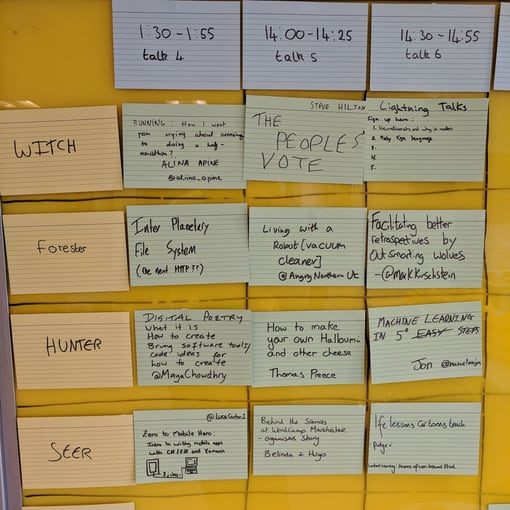 1:30 - 1:55
talk 4
14:00 - 14:25
talk 5
14:30 - 14:55
talk 6
WITCH
RUNNING: How I went
from crying about running
to doing a half-
marathon?
ALINA APINE
@alina_apine
STEVE HILTON
THE
PEOPLES'
VOTE
Lightning Talks
Sign up here:
1. Neurodiversity and why it matters
2. Baby sign language
3.
4.
5.
Forester
Inter Planetary
File System
(the next HTTP??)
Living with a
Robot [vacuum
cleaner]
@AngryNorthernUK
Facilitating better
retrospectives by
Outsmarting Wolves
- (@MarkKirschstein
HUNTER
DIGITAL POETRY
what it is
How to create
Bring software tools/
code ideas for
how to create
@MayaChowdhry
How to make
your own Halloumi
and other cheese
Thomas Preece
MACHINE LEARNING
IN 5* EASY STEPS
Jon
SEER
Zero to Mobile Hero:
Intro to writing mobile apps
with C#/F# and Xamarin
Behind the Scenes
at WordCamp Manchester
- organisers Story
Belinda + Hugo
life lessons Cartoons teach